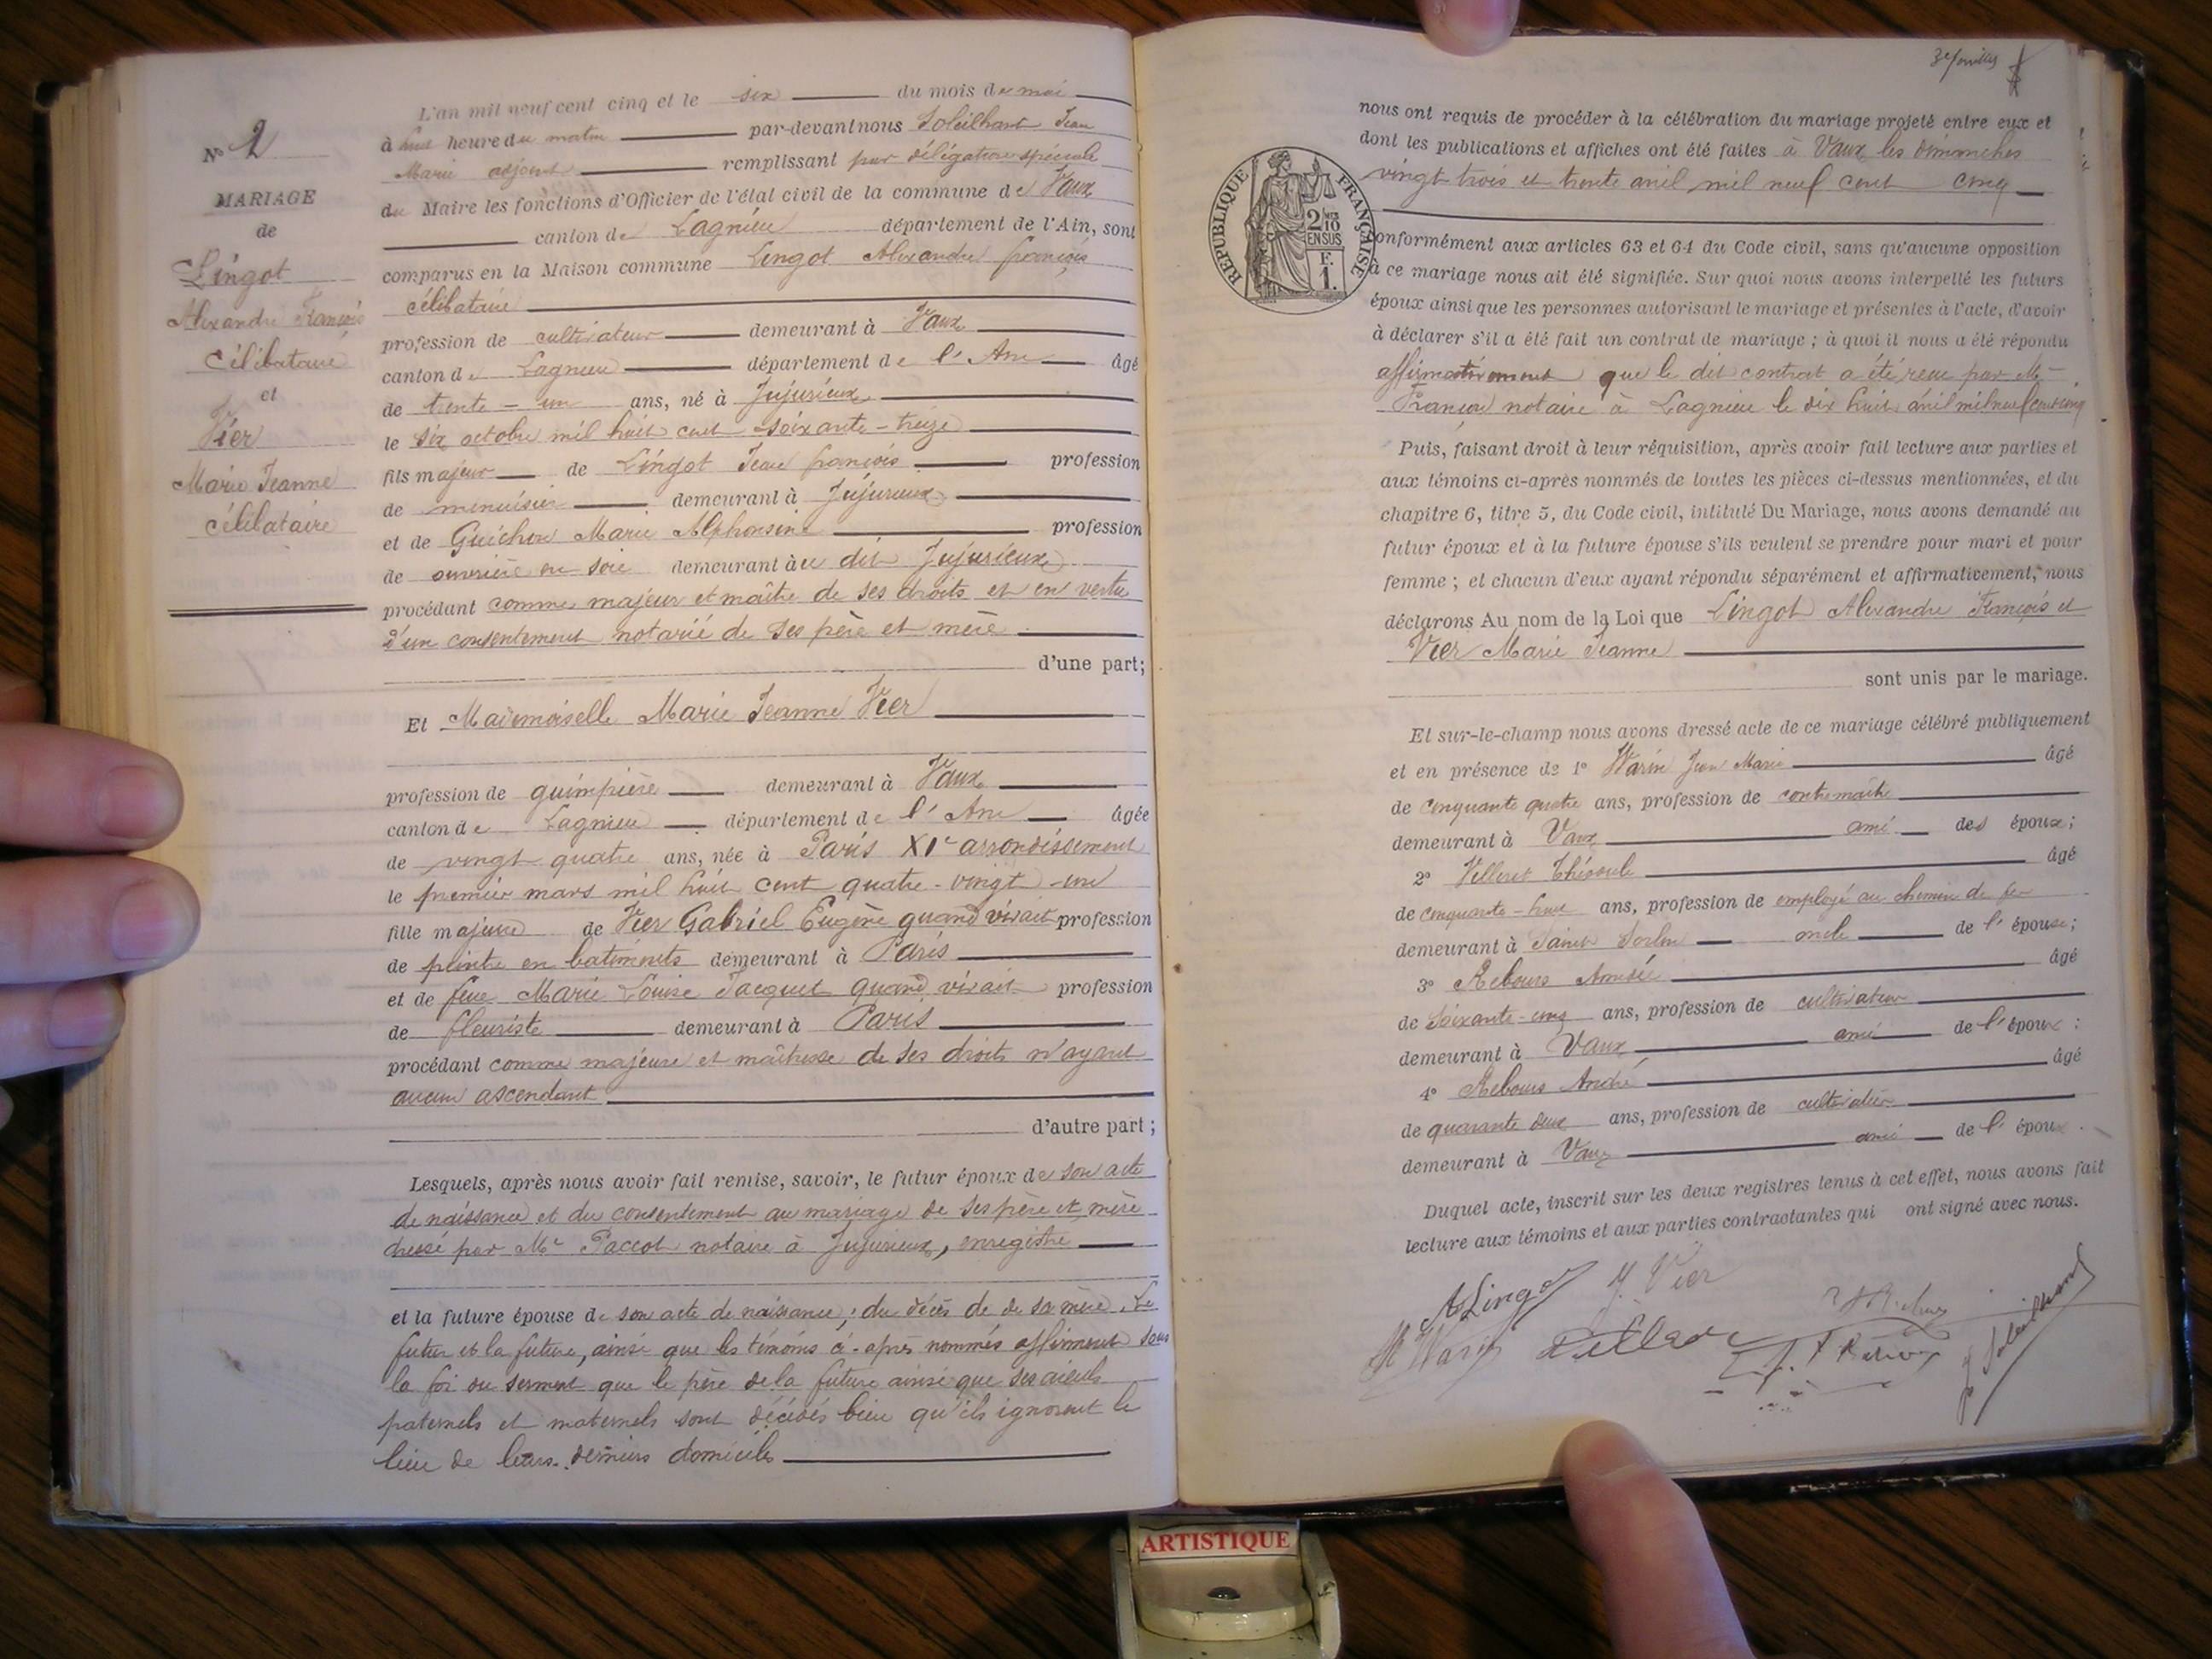 N° 2
MARIAGE
de
Lingot
Alexandre François
Célibataire
et
Vier
Marie Jeanne
célibataire
L'an mil neuf cent cinq et le six du mois de mai
à huit heure du matin par-devant nous Soleilhant Jean
Marie adjoint remplissant par délégation spéciale
du Maire les fonctions d'Officier de l'état civil de la commune de Vaux
canton de Lagnieu département de l'Ain, sont
comparus en la Maison commune Lingot Alexandre françois
célibataire
profession de cultivateur demeurant à Vaux
canton de Lagnieu département de l'Ain âgé
de trente-un ans, né à Jujurieux
le six octobre mil huit cent soixante-treize
fils majeur de Lingot Jean françois profession
de menuisier demeurant à Jujurieux
et de Guichon Marie Alphonsine profession
de ouvrière en soie demeurant à u dit Jujurieux
procédant comme majeur et maître de ses droits et en vertu
d'un consentement notarié de ses père et mère
d'une part;
Et Mademoiselle Marie Jeanne Vier
profession de guimpière demeurant à Vaux
canton de Lagnieu département de l'Ain âgée
de vingt quatre ans, née à Paris XIe arrondissement
le premier mars mil huit cent quatre-vingt-un
fille majeure de Vier Gabriel Eugène quand vivait profession
de peintre en batiments demeurant à Paris
et de feue Marie Louise Jacquet quand vivait profession
de fleuriste demeurant à Paris
procédant comme majeure et maîtresse de ses droits n'ayant
aucun ascendant
d'autre part;
Lesquels, après nous avoir fait remise, savoir, le futur époux de son acte
de naissance et du consentement au mariage de ses père et mère
dressé par Me Paccot notaire à Jujurieux, enregistré
et la future épouse de son acte de naissance; du décès de de sa mère. Le
futur et la future, ainsi que les témoins ci-après nommés affirment sous
la foi du serment que le père de la future ainsi que ses aieuls
paternels et maternels sont décédés bien qu'ils ignorent le
lieu de leurs derniers domiciles
3e
nous ont requis de procéder à la célébration du mariage projeté entre eux et
dont les publications et affiches ont été faites à Vaux les dimanches
vingt trois et trente avril mil neuf cent cinq
RÉPUBLIQUE FRANÇAISE
2/10 EN SUS
F. 1.
conformément aux articles 63 et 64 du Code civil, sans qu'aucune opposition
à ce mariage nous ait été signifiée. Sur quoi nous avons interpellé les futurs
époux ainsi que les personnes autorisant le mariage et présentes à l'acte, d'avoir
à déclarer s'il a été fait un contrat de mariage; à quoi il nous a été répondu
affirmativement que le dit contrat a été reçu par Me
notaire à Lagnieu le dix huit avril mil neuf cent cinq
Puis, faisant droit à leur réquisition, après avoir fait lecture aux parties et
aux témoins ci-après nommés de toutes les pièces ci-dessus mentionnées, et du
chapitre 6, titre 5, du Code civil, intitulé Du Mariage, nous avons demandé au
futur époux et à la future épouse s'ils veulent se prendre pour mari et pour
femme; et chacun d'eux ayant répondu séparément et affirmativement, nous
déclarons Au nom de la Loi que Lingot Alexandre François et
Vier Marie Jeanne
sont unis par le mariage.
Et sur-le-champ nous avons dressé acte de ce mariage célébré publiquement
et en présence de 1° Warin Jean Marie âgé
de cinquante quatre ans, profession de contremaître
demeurant à Vaux ami des époux;
2° Villeret âgé
de ans, profession de employé au chemin de fer
demeurant à Saint Sorlin oncle de l'épouse;
3° Rebours Amédée âgé
de soixante-cinq ans, profession de cultivateur
demeurant à Vaux ami de l'époux;
4° Rebours André âgé
de quarante deux ans, profession de cultivateur
demeurant à Vaux ami de l'époux.
Duquel acte, inscrit sur les deux registres tenus à cet effet, nous avons fait
lecture aux témoins et aux parties contractantes qui ont signé avec nous.
A Lingot J. Vier
Warin
ARTISTIQUE